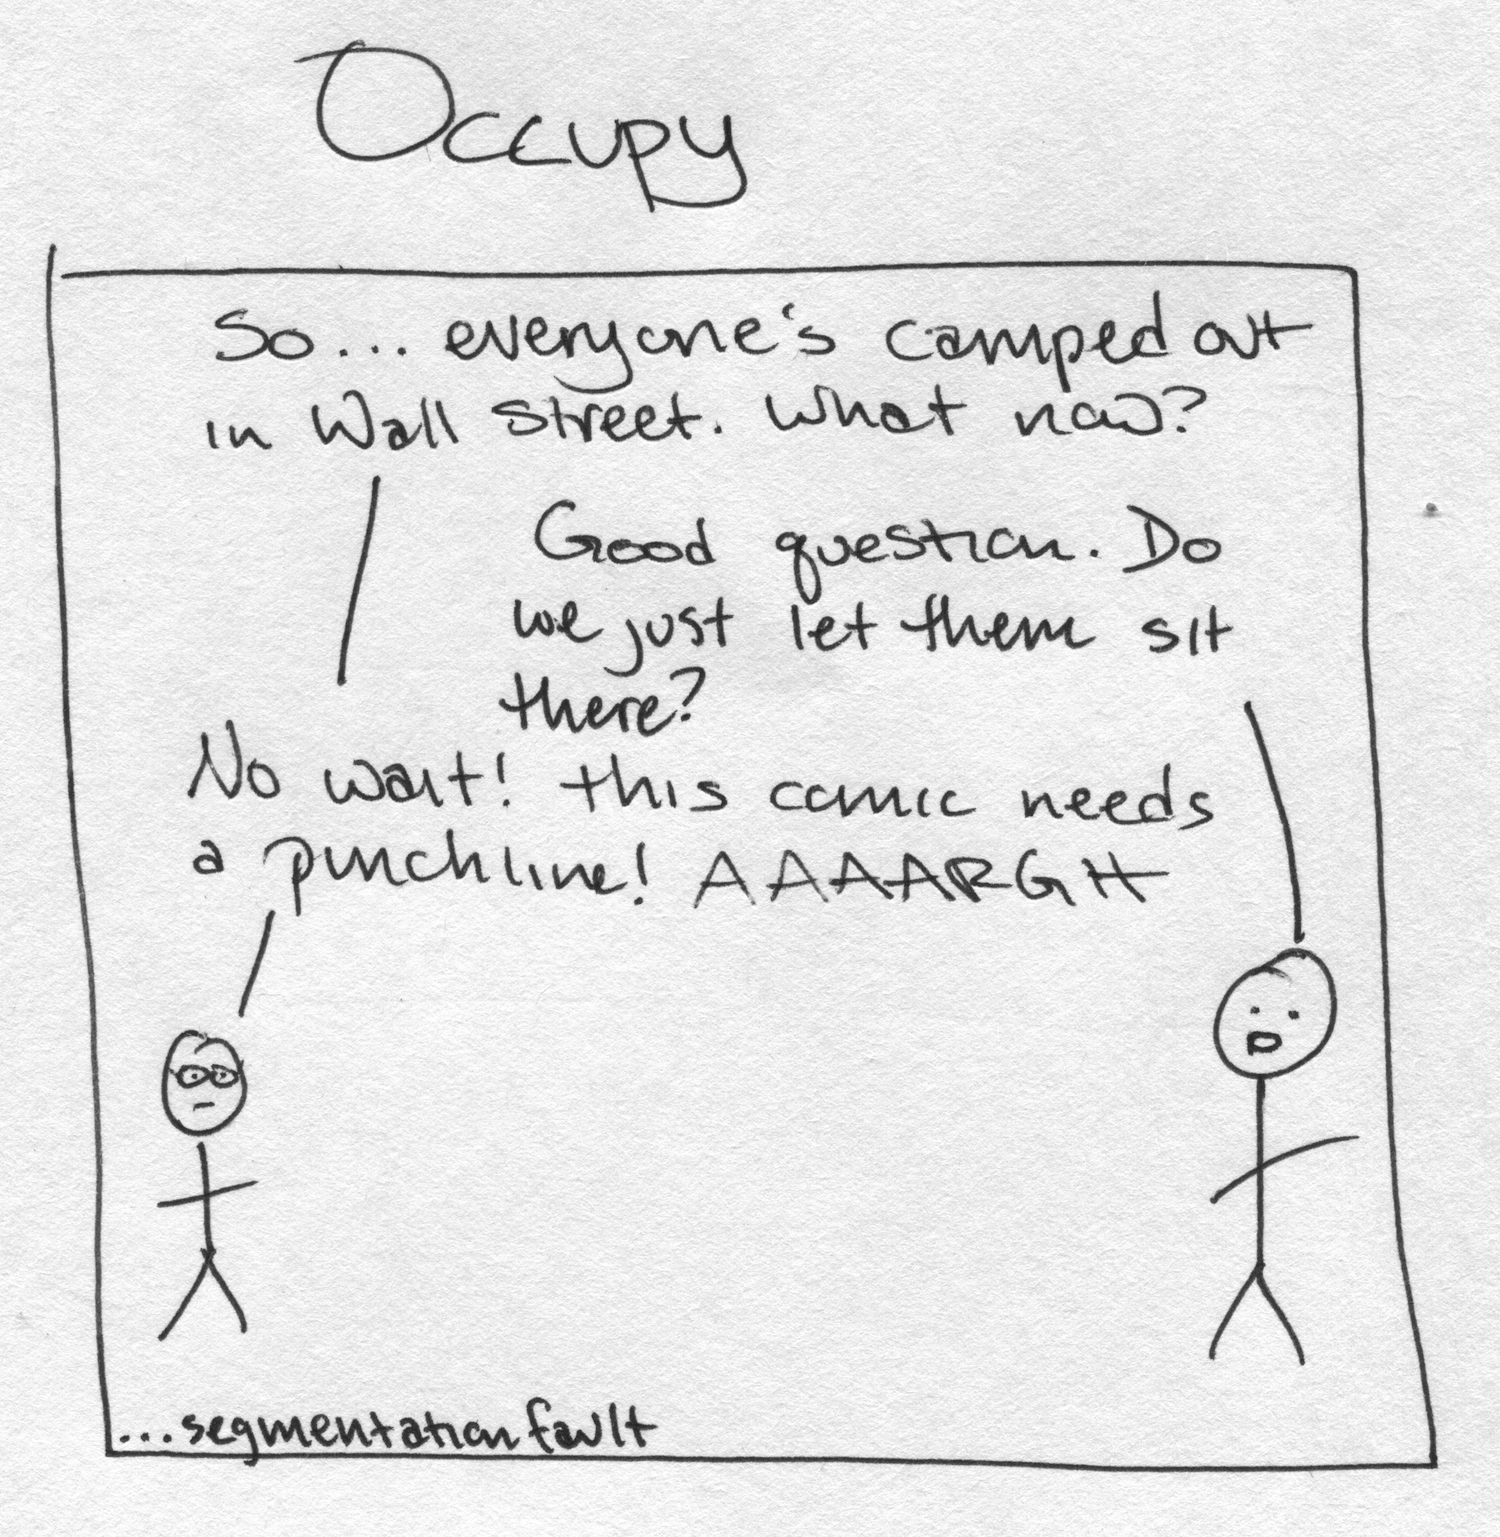 Occupy
So... everyone's camped out
in Wall Street. What now?
Good question. Do
we just let them sit
there?
No wait! this comic needs
a punchline! AAAARGH
...segmentation fault